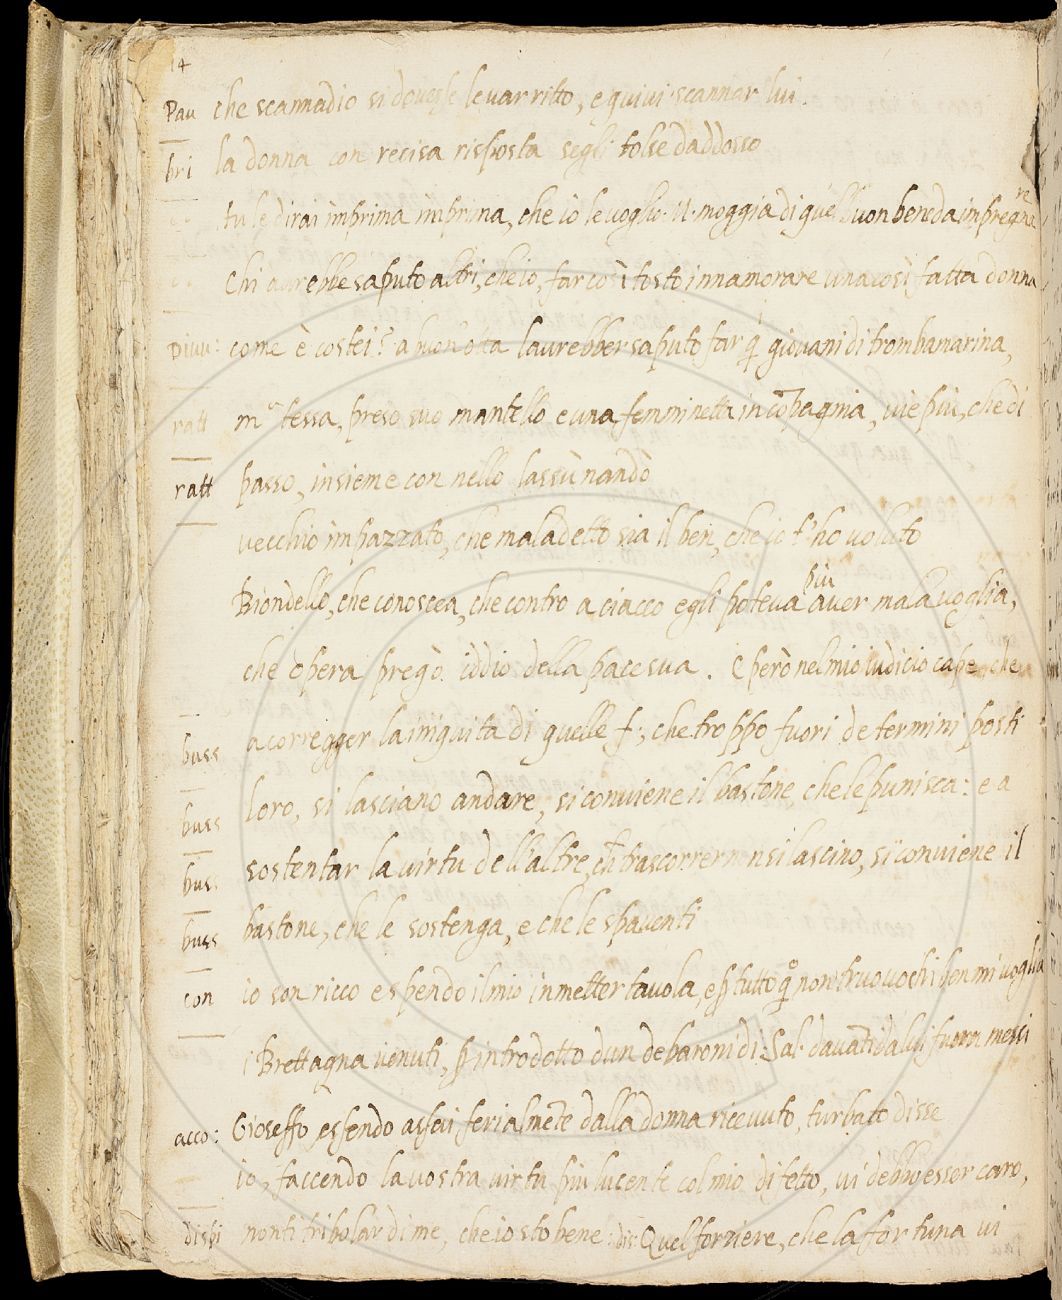 14
Pau che scannadio si dovesse levar ritto, e quivi scannar lui.
bri la donna con recisa risposta segli tolse daddosso
tu le dirai imprima imprima, che io le voglio. M. moggia di quel buon bene da impregnare
Chi avrebbe saputo altri, che io, far così tosto innamorare una così fatta donna
piuu: come è costei? a buon otta laurebber saputo far q.i giovani di tromba marina,
ratt m.a tessa, preso suo mantello e una femminetta in cōpagnia, vie più, che di
ratt passo, insieme con nello lassù n'andò
vecchio impazzato, che maladetto sia il ben, che io t'ho voluto
Biondello, che conoscea, che contro a ciacco egli poteva più aver mala voglia,
che opera pregò iddio della pace sua. E però nel mio iudicio cape, che
buss a corregger la iniquita di quelle f:, che troppo fuori de termini posti
buss loro, si lasciano andare, si conviene il bastone, che le punisca: e a
bus: sostentar la virtu dell'altre, ch̄ trascorrer n̄ si lascino, si conviene il
buss bastone, che le sostenga, e che le spaventi
con io son ricco e spendo il mio in metter tavola, e p̄ tutto q.o non truovo chi ben mi voglia
i Brettagna venuti, p̄ introdotto d'un de baroni di Sal. davāti da lui furon messi
acco: Gioseffo, essendo assai ferialmēte dalla donna ricevuto, turbato disse
io, faccendo la vostra virtu piu lucente col mio difetto, vi debbo esser caro,
dispi non ti tribolar di me, che io sto bene: dis: Quel forniere, che la fortuna vi